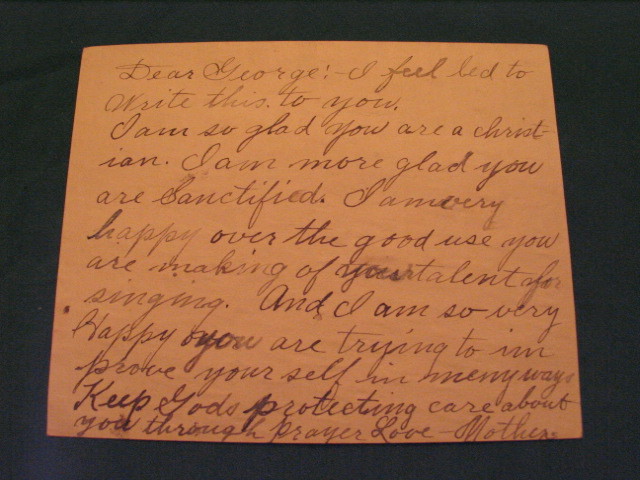 Dear George:- I feel led to
Write this. to you.
I am so glad you are a christ-
ian. I am more glad you
are Sanctified. I am very
happy over the good use you
are making of your talent for
singing. And I am so very
Happy you are trying to im
prove your self in meny ways
Keep Gods protecting care about
you through prayer Love - Mother.